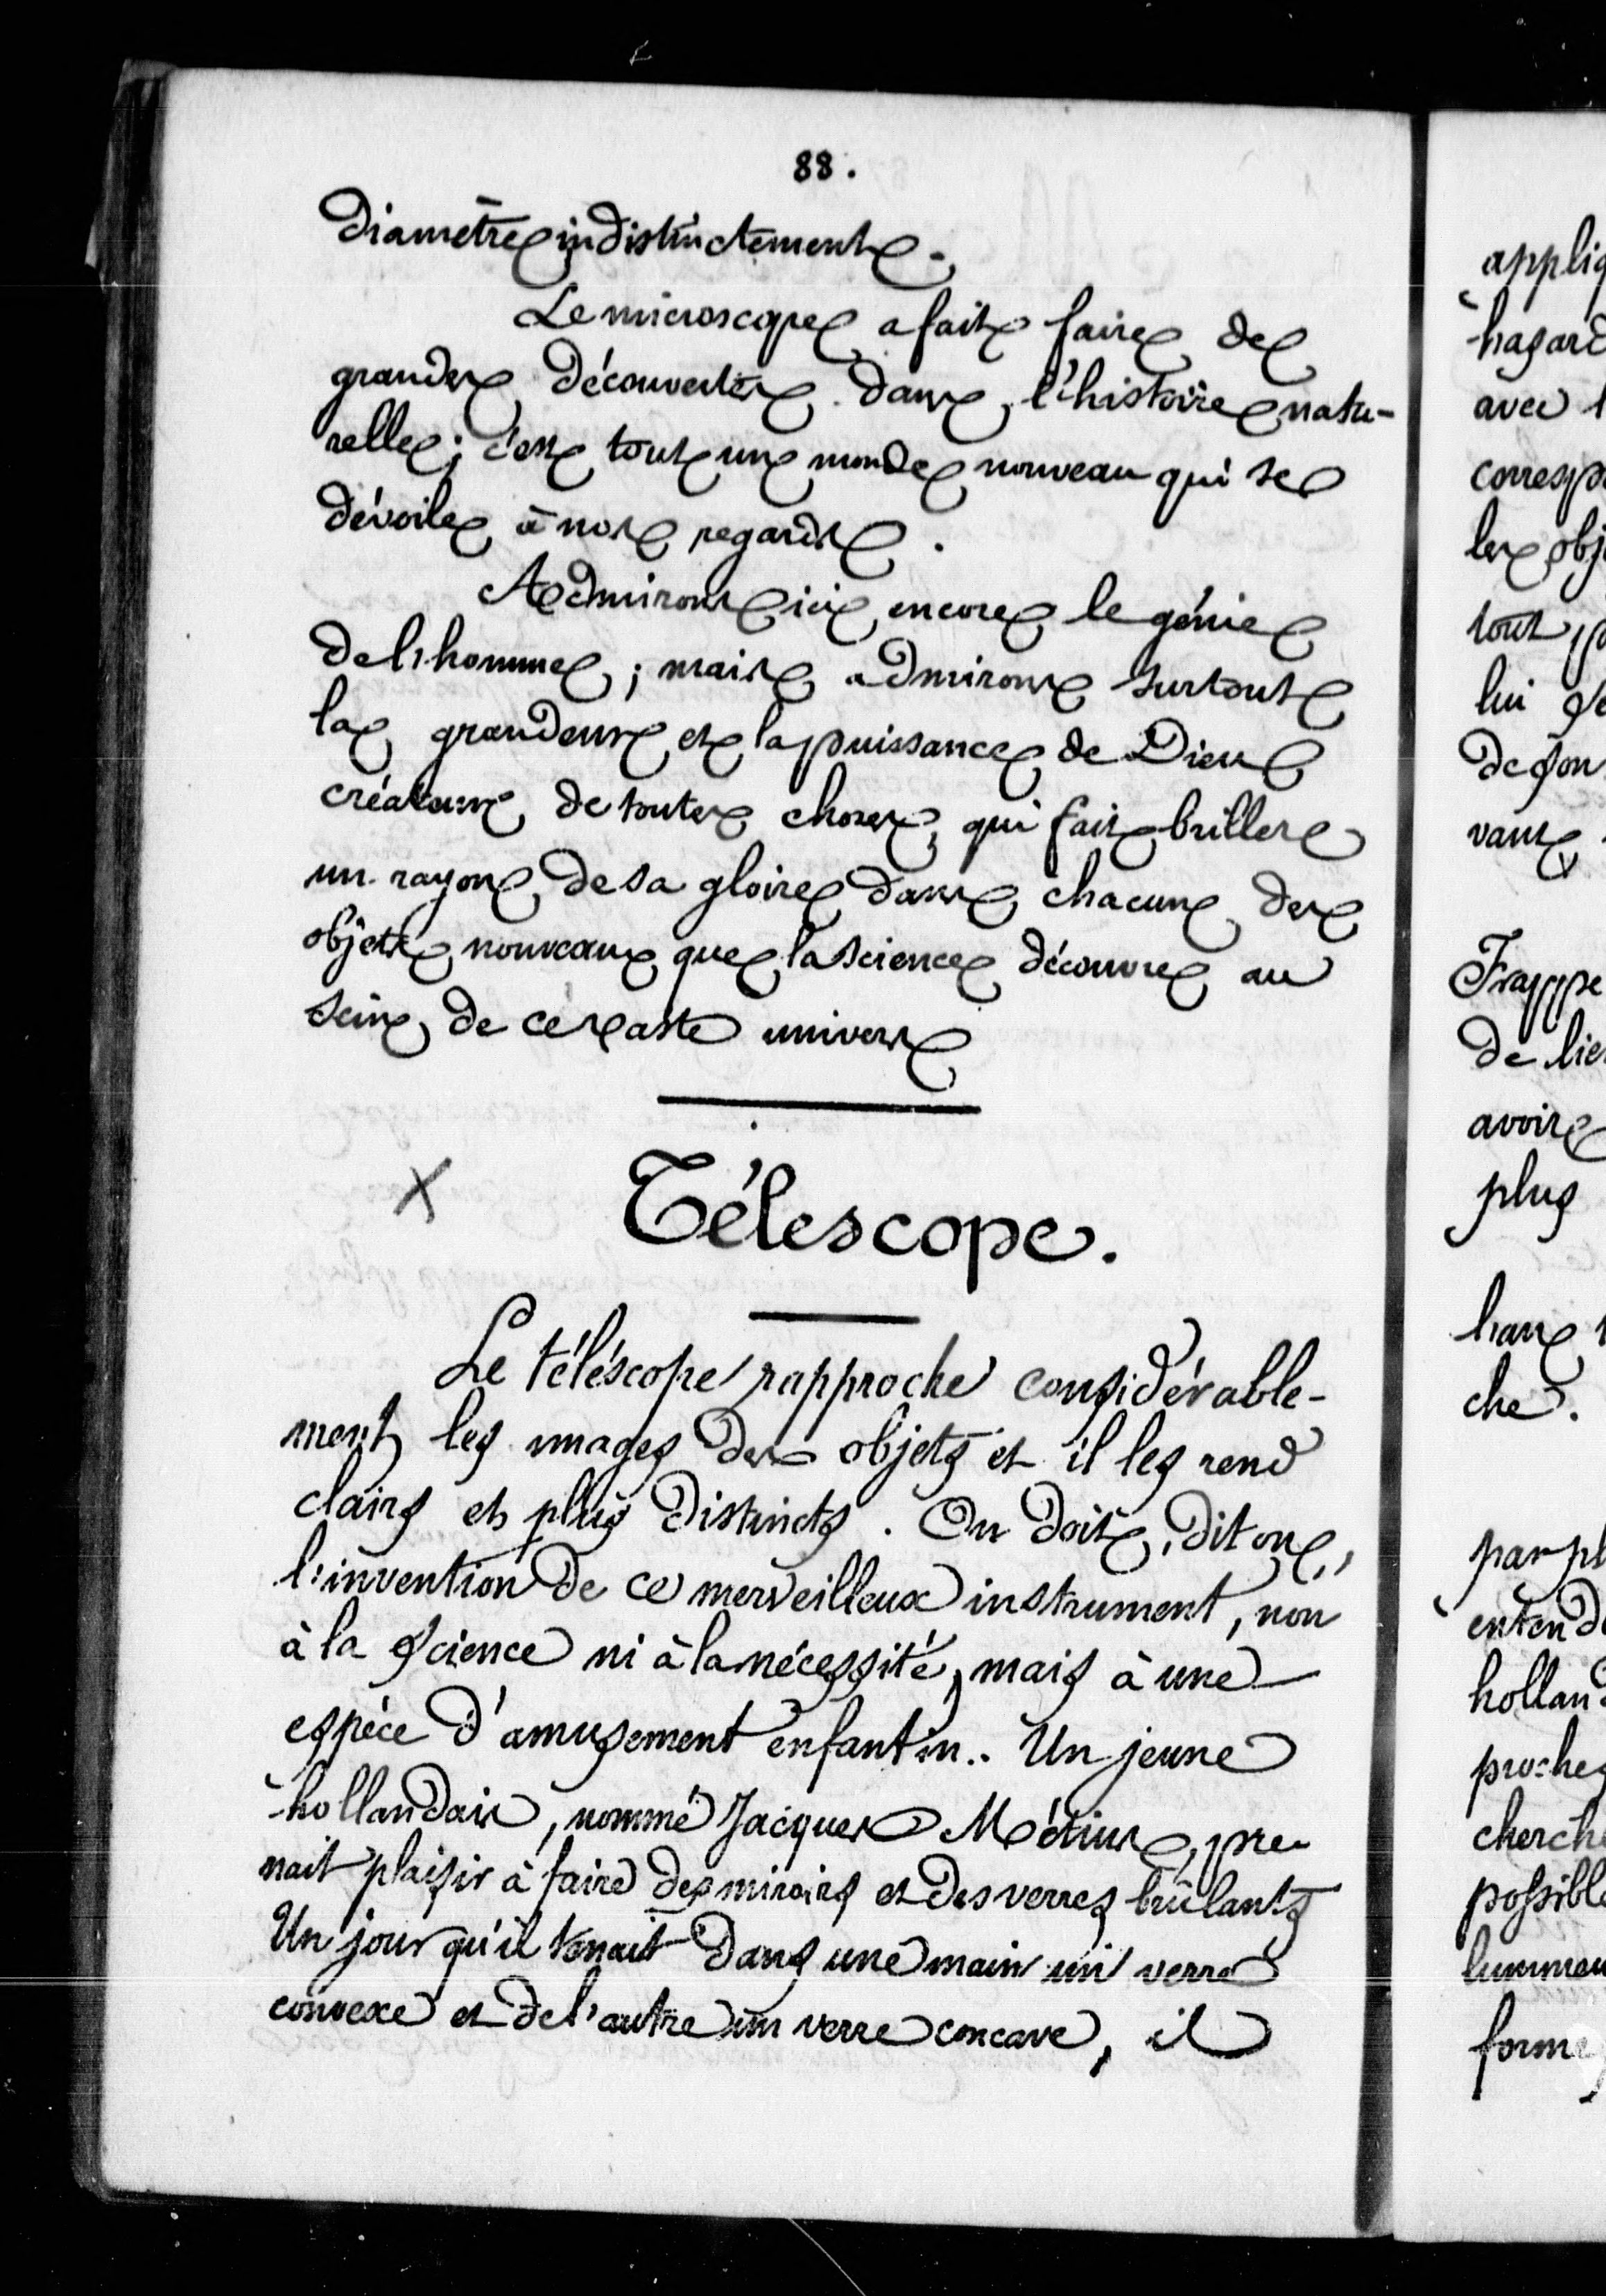 88.
diamètre indistinctement.
Le microscope a fait faire de
grandes découvertes dans l'histoire natu-
relle; c'est tout un monde nouveau qui se
dévoile à nos regards.
Admirons ici encore le génie
de l'homme; mais admirons surtout
la grandeur et la puissance de Dieu
créateur de toutes choses, qui fait briller
un rayon de sa gloire dans chacun des
objets nouveaux que la science découvre au
sein de ce vaste univers
X
Télescope.
Le téléscope rapproche considérable-
ment les images des objets et il les rend
clairs et plus distincts. On doit, dit on,
l'invention de ce merveilleux instrument, non
à la science ni à la nécessité, mais à une
espèce d'amusement enfantin.. Un jeune
hollandais, nommé Jacques Métius, pre
nait plaisir à faire des miroirs et des verres brûlants
Un jour qu'il tenait dans une main un verre
convexe et de l'autre un verre concave, il
appliq
hasard
avec l
corresp
les obj
tout, p
lui se
de son
vant
Frappe
de lie
avoir
plus
che.
par pl
entend
holland
proches
cherche
possible
lummeu
forme